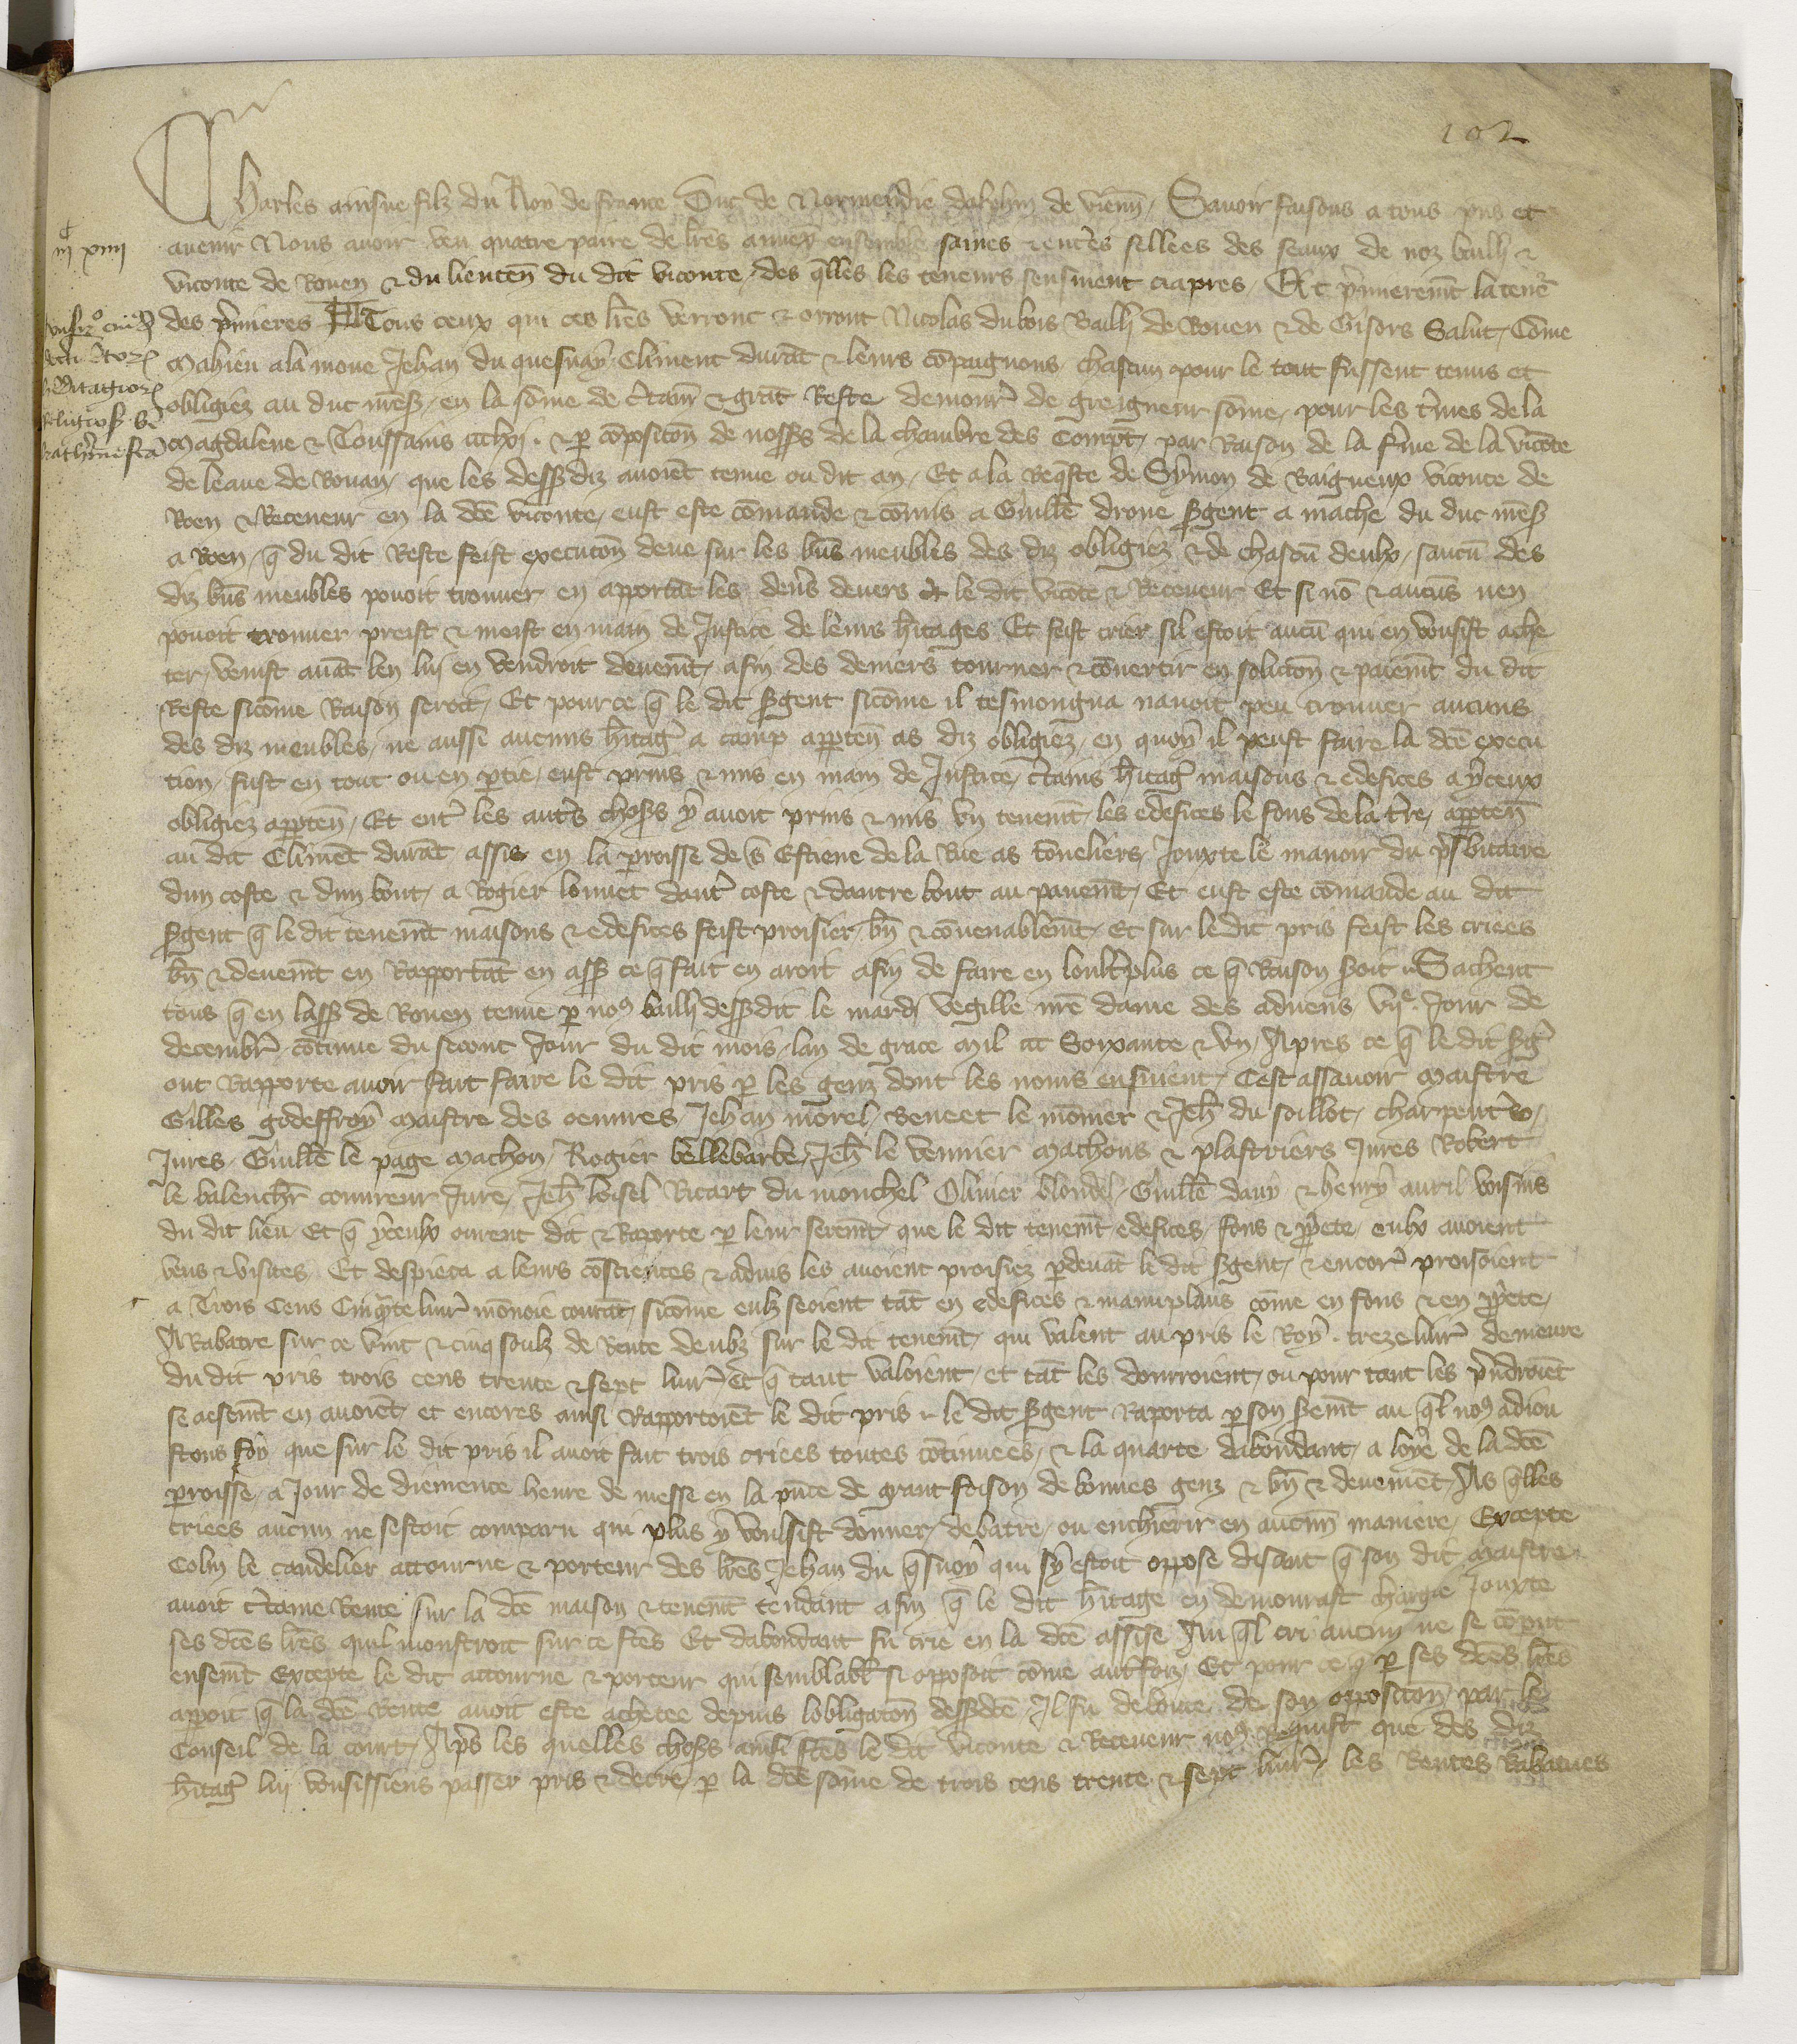 102
Charles ainsne filz du Roy de france Duc de Normendie dalphin de vienn̄. Savoir faisons a tous pn̄s et
avenir Nous avoir veu quatre paire de lr̄es annex̄ ensemble saines & entr̄es sellees des seaux de noz bailli &
viconte de Rouen & du lieuten̄ du dit viconte, des q̄lles les teneurs sensuient ci apres, Et p̄mieremt̄ la tenē
des p̄mieres A Tous ceux qui ces lr̄es verront & orront Nicolas dubois Bailli de Rouen & de Gisors Salut, Cōme
Mahieu ala moue Jehan du quesnay Climent durāt & leurs cōpaignons chascun pour le tout fussent tenus et
obligiez au duc nr̄e s̄ en la sōme de c̄tain̄ & grāt Reste demour̄ de greigneur sōme, pour les t̄mes de la
Magdalene & Toussains ccclxj. & p̄ cōpositōn de noss̄s de la chambre des Compt̄, par Raison de la f̄me de la vicōte
de leaue de Rouan, que les dess̄diz avoiēt tenue ou dit an, Et a la Req̄ste de Symon de Baigneux viconte de
Roen & Receveur en la dc̄e viconte, eust este cōmande & cōmis a Guill̄e droue s̄gent a mache du duc nr̄e s̄
a Roen, q̄ du dit Reste feist executōn deue sur les bn̄s meubles des diz obligiez & de chascū deulx, saucū des
diz bn̄s meubles povoit trouver en apportāt les den̄s devers le dit vicōte & Receveur Et si nō & aucūs nen
povoit trouver preist & meist en main de Justice de leurs h̄itages Et feist crier sil estoit aucū qui en vousist ache
ter, venist avāt len lui en vendroit deuemt̄, afin des deniers tourner & cōvertir en solucōn & paiemt̄ du dit
Reste sicōme Raison seroit, Et pour ce q̄ le dit s̄gent sicōme il tesmongna navoit peu trouver aucuns
des diz meubles, ne aussi aucuns h̄itaḡ a camp app̄ten̄ as diz obligiez, en quoy il peust faire la dc̄e execu
tion, fust en tout ou en p̄tie, eust prins & mis en main de Justice, c̄tains h̄itaḡ maisons & edefices a yceux
obligiez app̄ten̄, Et ent̄ les aut̄s chos̄s y avoit prins & mis vn tenemt̄, les edefices le fons de la t̄re, app̄ten̄
au dit Climēt durāt, assis en la p̄roisse de s̄ Estiene de la Rue as tōneliers, Jouxte le manoir du p̄sbitaire
dun coste & dun bout, a Rogier louvet daut̄ coste & dautre bout au pavemt̄, Et eust este cōmande au dit
s̄gent q̄ le dit tenemt̄ maisons & edefices feist proisier, bn̄ & cōvenablemt̄, Et sur le dit pris feist les criees
bn̄ & deuemt̄ en Rapportāt en ass̄ ce q̄ fait en aroit afin de faire en loult̄plus ce q̄ Raison s̄oit Sachent
tous q̄ en lass̄ de Rouen tenue p̄ noꝰ bailli dess̄dit le mardi vegille nr̄e dame des advens, vijᵉ. Jour de
decembr̄ cōtinue du secont Jour du dit mois, lan de grace Mil ccc Soixante & vn, Apres ce q̄ le dit s̄ḡ
out Rapporte avoir fait faire le dit pris p̄ les genz dont les noms ensuient, Cest assavoir Maistre
Gilles godeffroy Maistre des oeuvres, Jehan morel, Beneet le mōnier & Jeh̄ du soillot, charpent̄s,
Jures, Guill̄e le page Machon, Rogier bellebarbe, Jeh̄ le vennier Machons & plastriers Jures Robert
le balench̄r couvreur Jure, Jeh̄ loisel Ricart du monchel Olivier blondel, Guill̄e davy & henry avril voisins
du dit lieu, Et q̄ yceulx ourent dit & Raporte p̄ leur seremt̄, que le dit tenemt̄ edefices, fons & pp̄ete, eulx avoient
veus & visites, Et despieca a leurs cōsciences & advis les avoient proisiez p̄devāt le dit s̄gent, & encor̄ proisoient
a Trois Cens Cinq̄te livr̄ mōnoie courāt, sicōme eulz seoient tāt en edefices & mainplans cōme en fons & en pp̄ete,
A Rabatre sur ce vint & cinq soulz de Rente deubz sur le dit tenemt̄, qui valent au pris le Roy. treze livr̄ demeure
du dit pris trois cens trente & sept livr̄, Et q̄ tant valoient, et tāt les donrroient, ou pour tant les p̄ndroiēt
se aesemt̄ en avoiēt, et encores ainsi Rapportoiēt le dit pris & le dit s̄gent Raporta p̄ son s̄emt̄ au q̄l noꝰ adiou
stons foy que sur le dit pris il avoit fait trois criees toutes cōtinuees, & la quarte dabondant, a loye de la dc̄e
p̄roisse, a Jour de diemence heure de messe en la pn̄ce de grant foison de bonnes genz & bn̄ & deuemēt, As q̄lles
criees aucun ne sestoit comparu qui plus y voulsist donner, debatre, ou encherir en aucun̄ maniere, Excepte
Colin le candelier attourne & porteur des lr̄es Jehan du q̄snoy qui sy estoit oppose disant q̄ son dit Maistre
avoit c̄taine Rente sur la dc̄e maison & tenemt̄ tendant afin q̄ le dit h̄itage en demourast chargie Jouxte
ses dc̄es lr̄es quil monstroit sur ce fc̄es Et dabondant fu crie en la dc̄e assise Au q̄l cri aucun ne se cōput
ensemt̄ Excepte le dit attourne & porteur qui semblabl̄ si opposoit cōme aut̄foiz, Et pour ce q̄ p̄ ses dc̄es lr̄es
app̄oit q̄ la dc̄e Rente avoit este achetee depuis lobligatōn dess̄dc̄e Il fu deboute de son oppositōn par le
Conseil de la court, Ap̄s les quelles chos̄s ainsi fc̄es le dit viconte & Receveur noꝰ Requist que des diz
h̄itaḡ lui vousissiens passer pris & decre, p̄ la dc̄e sōme de trois cens trente & sept livr̄, les Rentes Rabatues